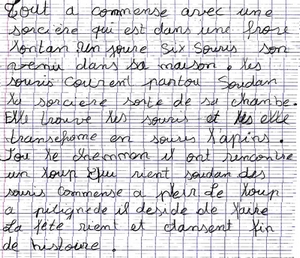 Tout a commense avec une
sorciere qui est dans une frore
lontan un joure six souris son
venu dans sa maison. les
souris courent partou Soudan
la sorciere sorte de sa chanbe.
Elle trouve les souris et les elle
transeframe en souris lapins.
Tou le chemmon il ont rencontre
un loup qui rient soudan des
souris commense a pleir Le loup
a pitignede il deside de faire
La fête rient et dansent fin
de histoire.